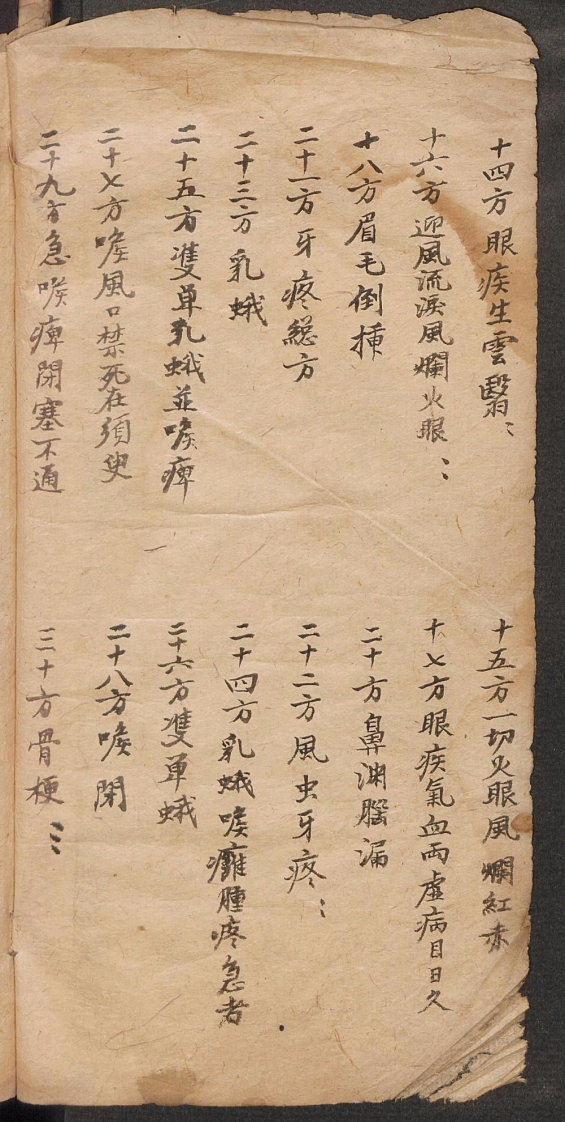 十四方眼疾生雲翳
十五方一切火眼風爛紅赤
十六方迎風流淚風爛火眼
十七方眼疾氣血両虛病目日久
十八方眉毛倒揷
二十方鼻渊腦漏
二十一方牙疼緫方
二十二方風虫牙疼
二十三方乳蛾
二十四方乳蛾喉癰腫疼急者
二十五方雙单乳蛾並喉痺
二十六方雙单蛾
二十七方喉風口禁死在須臾
二十八方喉閉
二十九方急喉痺閉塞不通
三十方骨梗